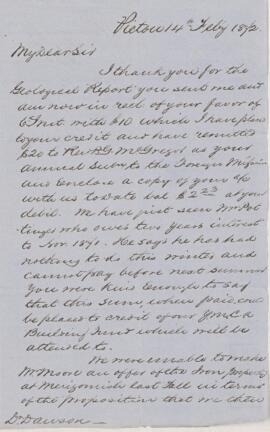 Pictou 14th Feby 1872
My Dear Sir
I thank you for the
Geological Report you sent me and
am now in rect of your favor of
6 Inst. with $10 which I have placed
to your credit and have remitted
$20 to Revd P.G. McGregor as your
Annual Subn to the Foreign Mission
and enclose a copy of your a/c
with us to date bal $2 23 at your
debit. We have just seen Mr
who owes two years interest
to Nov 1871. He says he has had
nothing to do this winter and
cannot pay before next summer
You were kind enough to say
that this sum, when paid, could
be placed to credit of our Y.M.C.A
Building Fund which will be
attended to.
We were unable to make
Mr Moore an offer of the Iron property
at Merigomish last Fall in terms
of the proposition that we then
Dr Dawson